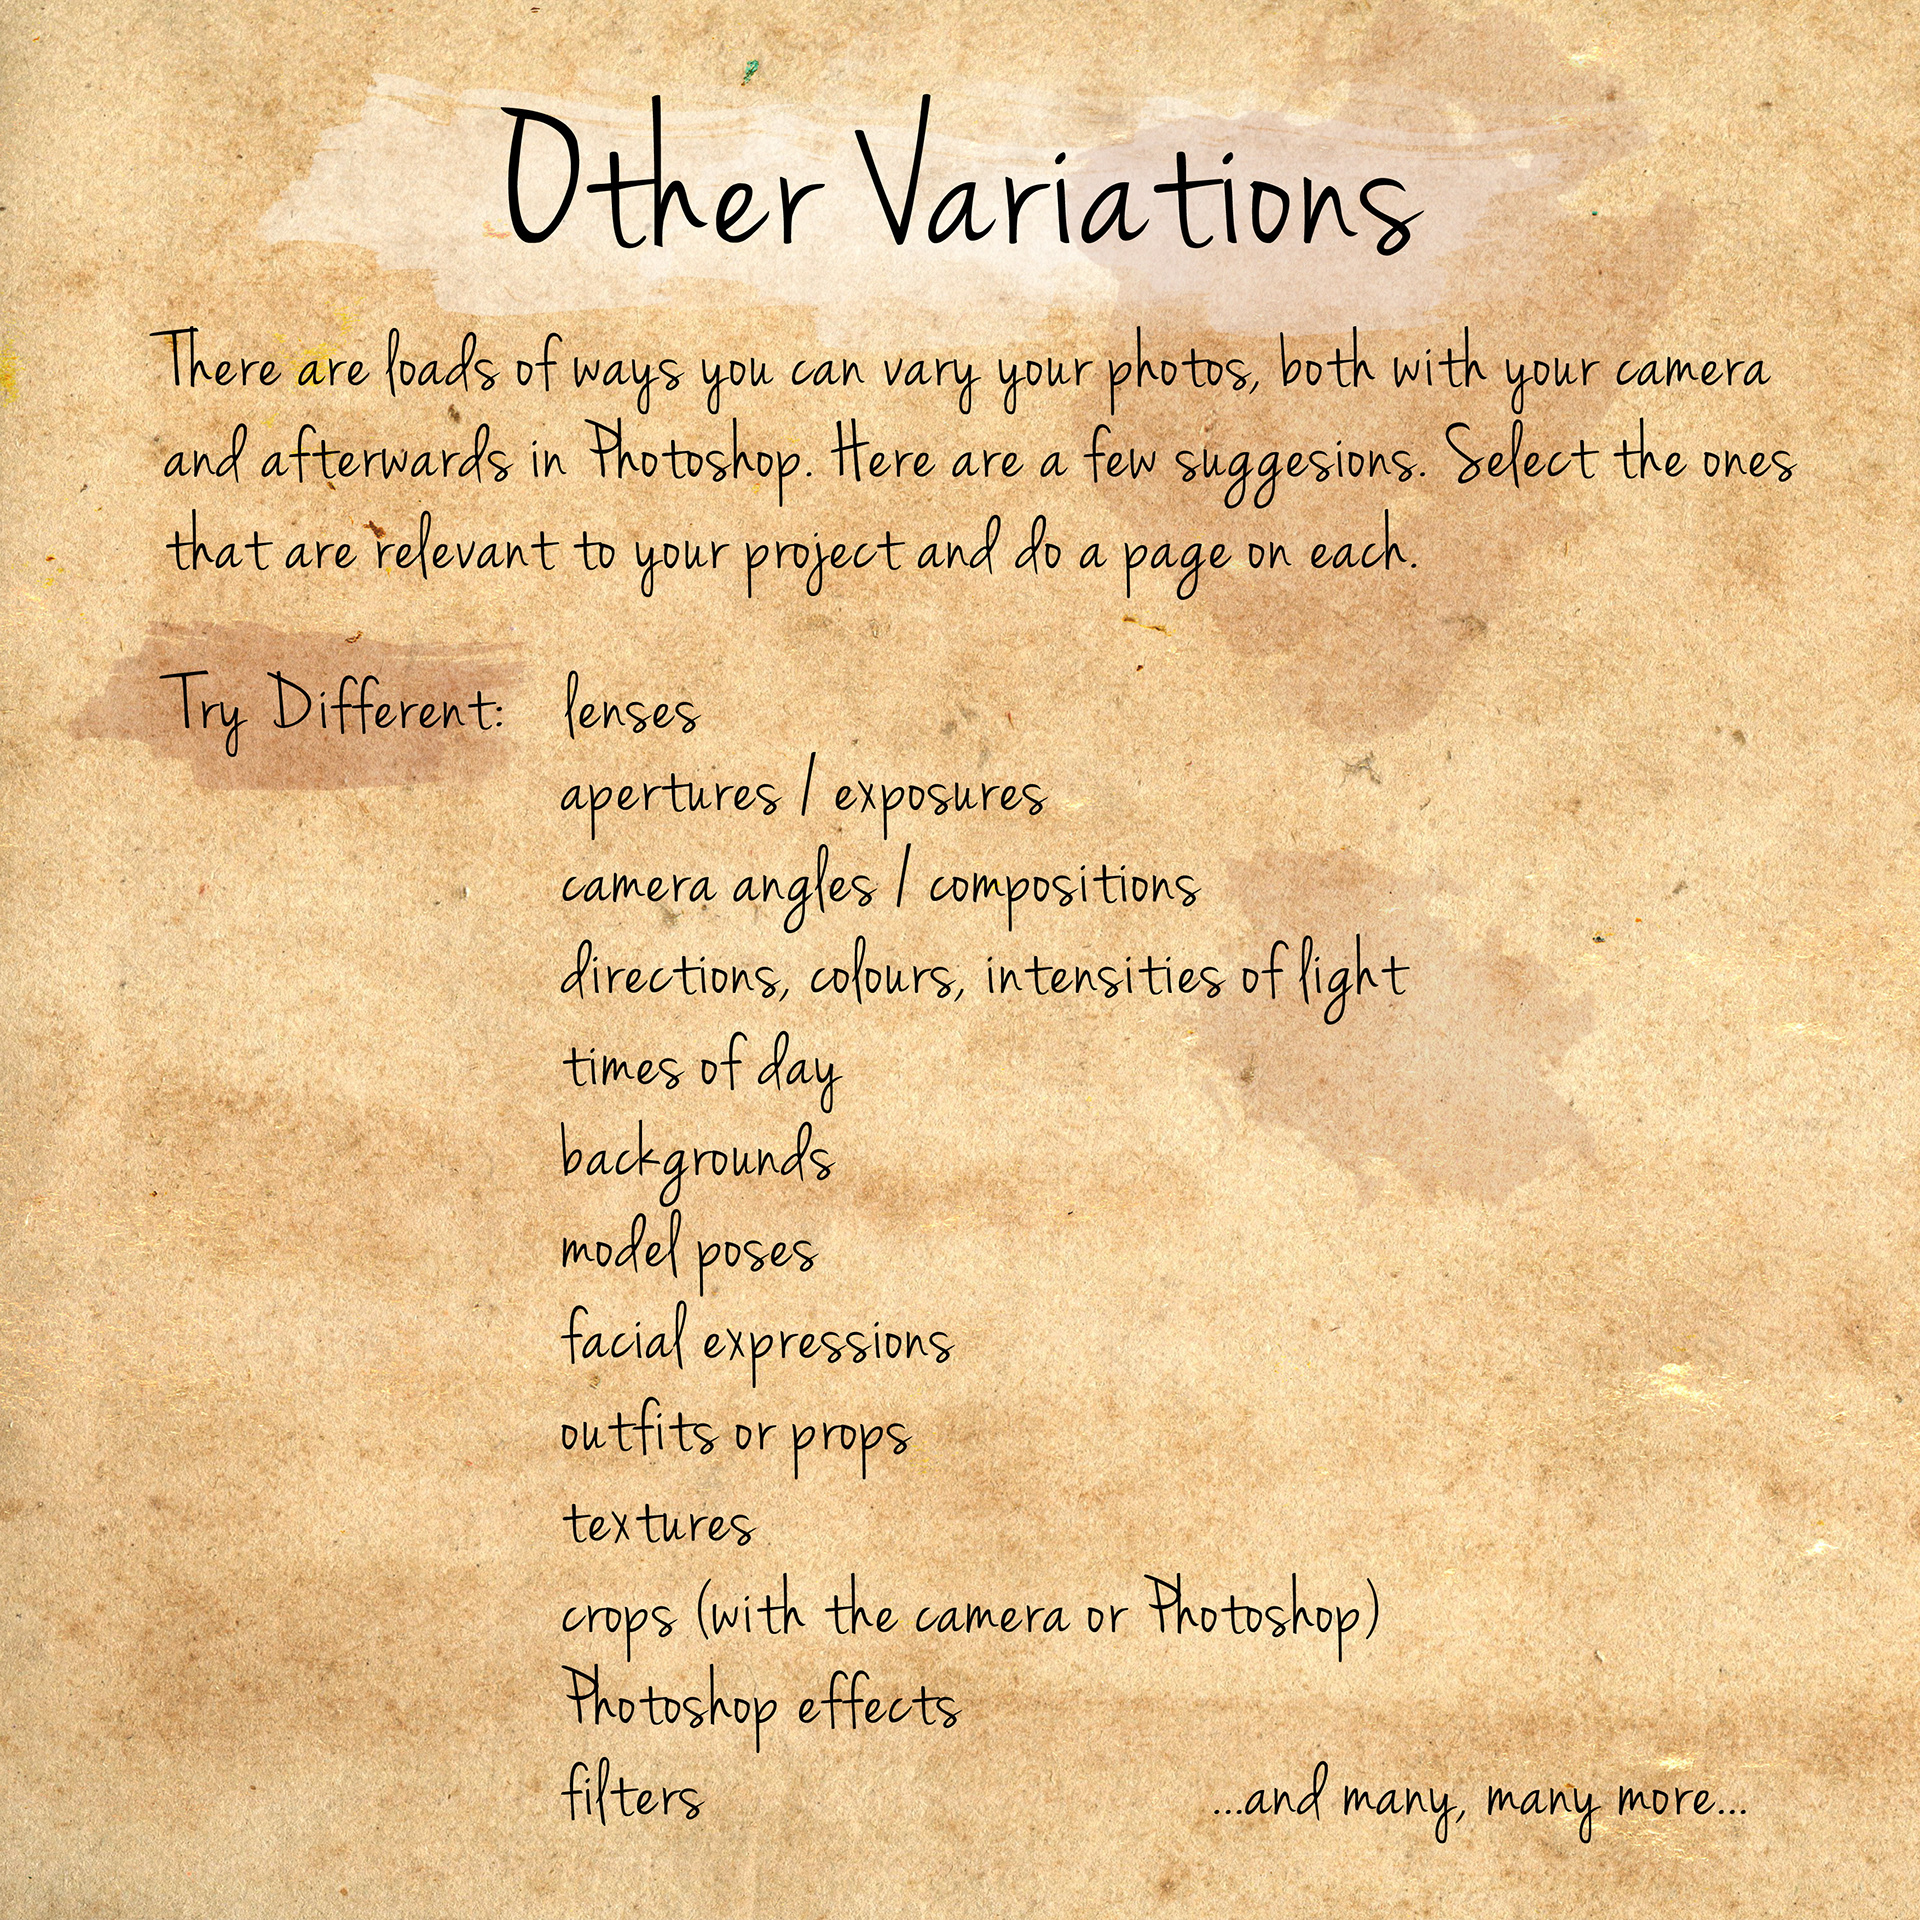 Other Variations
There are loads of ways you can vary your photos, both with your camera
and afterwards in Photoshop. Here are a few suggesions. Select the ones
that are relevant to your project and do a page on each.
Try Different: lenses
apertures / exposures
camera angles / compositions
directions, colours, intensities of light
times of day
backgrounds
model poses
facial expressions
outfits or props
textures
crops (with the camera or Photoshop)
Photoshop effects
filters ...and many, many more...